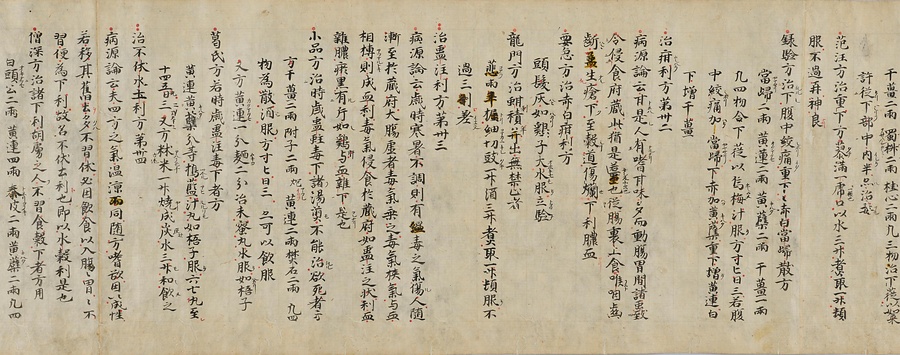 干薑二兩 蜀椒二兩 桂心二兩凡三物治下篩以粱
許從下部中內半忽治盡
范汪方治重下方豉滿一席口以水三升煮取一升頓
服不過再神良
錄驗方治下腹中絞痛重下下赤白當歸散方
當歸二兩 黃連二兩 黃蘗二兩 干薑一兩
凡四物合下篩以烏梅汁服方寸匕日三若腹
中絞痛加當歸下赤加黃蘗重下增黃連白
下增干薑
治疳利方第卅二
病源論云甘是人有嗜甘味多而動腸胃間諸蟲致
令侵食府藏此猶是蟲也從腸裏上食喉咽齒
斷並生瘡下至穀道傷爛下利膿血
要急方治赤白疳利方
頭髮灰如雞子大水服立驗
龍門方治蚶積年出無禁止者
羊
細切豉一升酒二升煮取一升頓服不
過三
治蠱注利方第卅三
病源論云歲時寒暑不調則有
毒之氣傷人隨
漸至於藏府大腸虛者毒氣乘之毒氣挾氣與血
相搏則成血利毒氣侵食於藏府如蠱注之狀利血
雜膿瘀黑有片如雞
與血雜下是也
小品方治時歲蠱注毒下諸湯煎不能治欲死者方
方干薑二兩 附子二兩 黃連二兩 礬石二兩 凡四
物為散酒服方寸匕日二亦可以飲服
又方 黃連一分 麴二分治末蜜丸水服如梧子
葛氏方若時歲蠱注毒下者方
黃連黃蘗分等搗藍汁丸如梧子服六七丸至
十四五丸 又方林米一升燒成灰水三升和飲之
治不伏水土利方第卅四
病源論云夫四方之氣溫涼不同隨方嗜欲因以成性
若移其舊土多不習伏必因飲食以入腸胃胃不
習便為下利故名不伏水土利也即以水穀利是也
僧深方治諸下利胡虜之人不習食穀下者方用
白頭公二兩 黃連四兩 秦皮二兩黃蘗二兩凡四